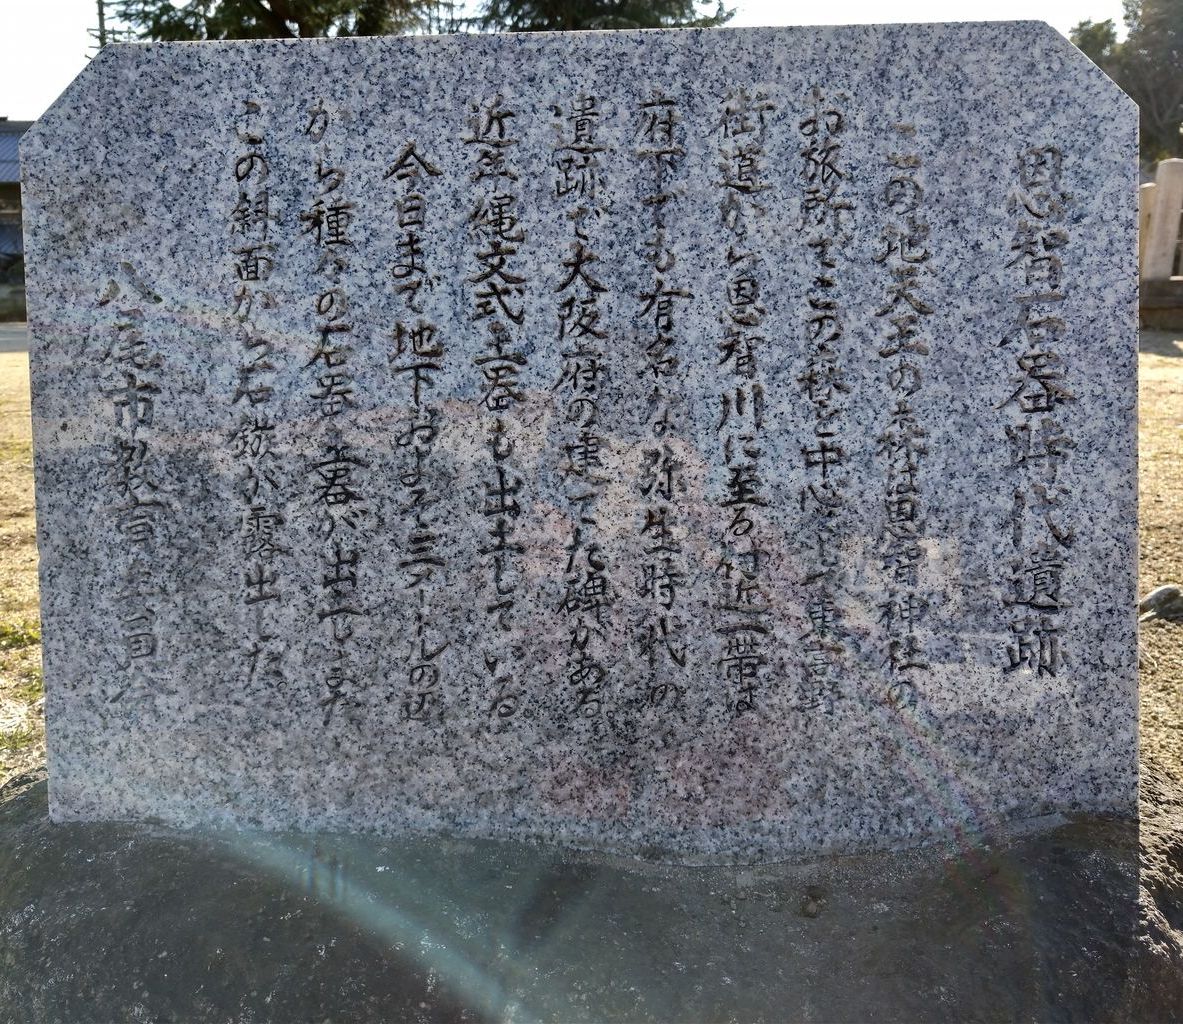 恩智石器時代遺跡
この地天王の森は恩智神社の
お旅所でこの森を中心として東高野
街道から恩智川に至る付近一帯は
府下でも有名な弥生時代の
遺跡で大阪府の建てた碑がある
近年縄文式土器も出土している
今日まで地下およそ三メートルの辺
から種々の石器土器が出でまた
この斜面から石鏃が露出した
八尾市教育委員会